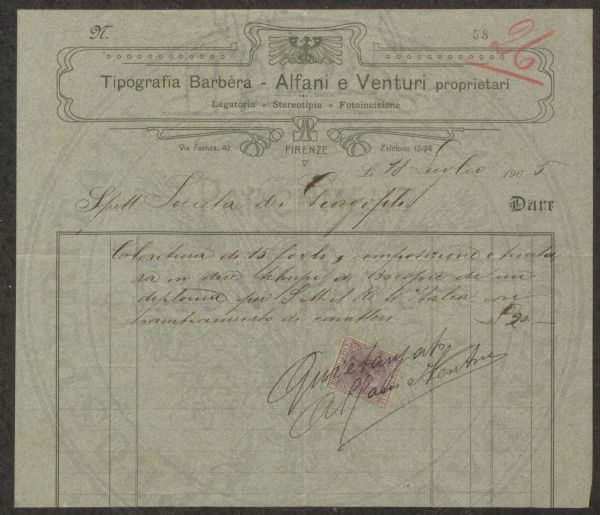 N. 58 26
Tipografia Barbèra - Alfani e Venturi proprietari
Legatoria - Stereotipia - Fotoincisione
Via Faenza, 42 FIRENZE Telefono 12-94
Li 18 Luglio 1905
Spett Società dei Georgofili Dare
Coloritura di 15 fogli, composizione e tiratu
ra in due di 2 copie di un
diploma per S. M. il Re d'Italia con
cambiamento di caratteri £ 20.—
Quietanzato
Alfani e Venturi